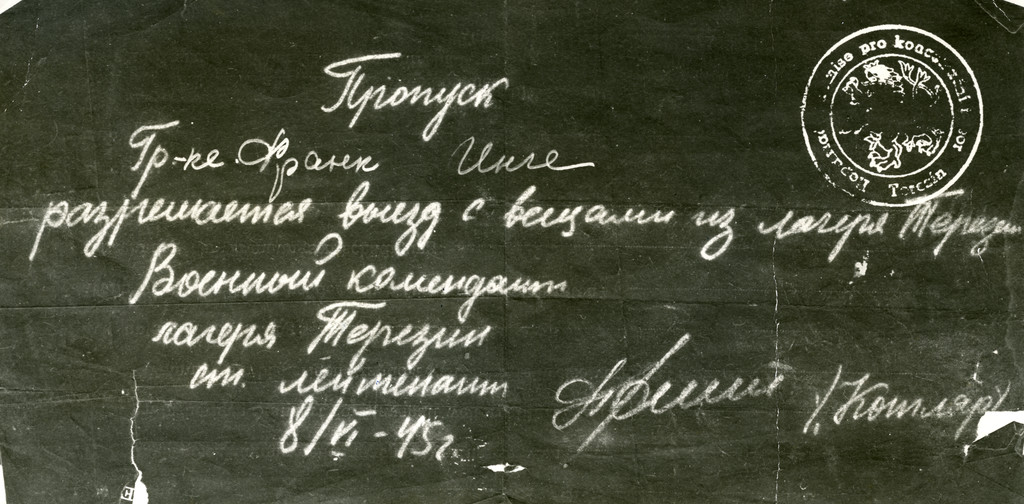 Пропуск
Гр-ке Франк Инге
разрешается выезд с вещами из лагеря Терезин
Военный комендант
лагеря Терезин
ст. лейтенант
8/VI-45г.
(Кошляр)
pro
Terezín